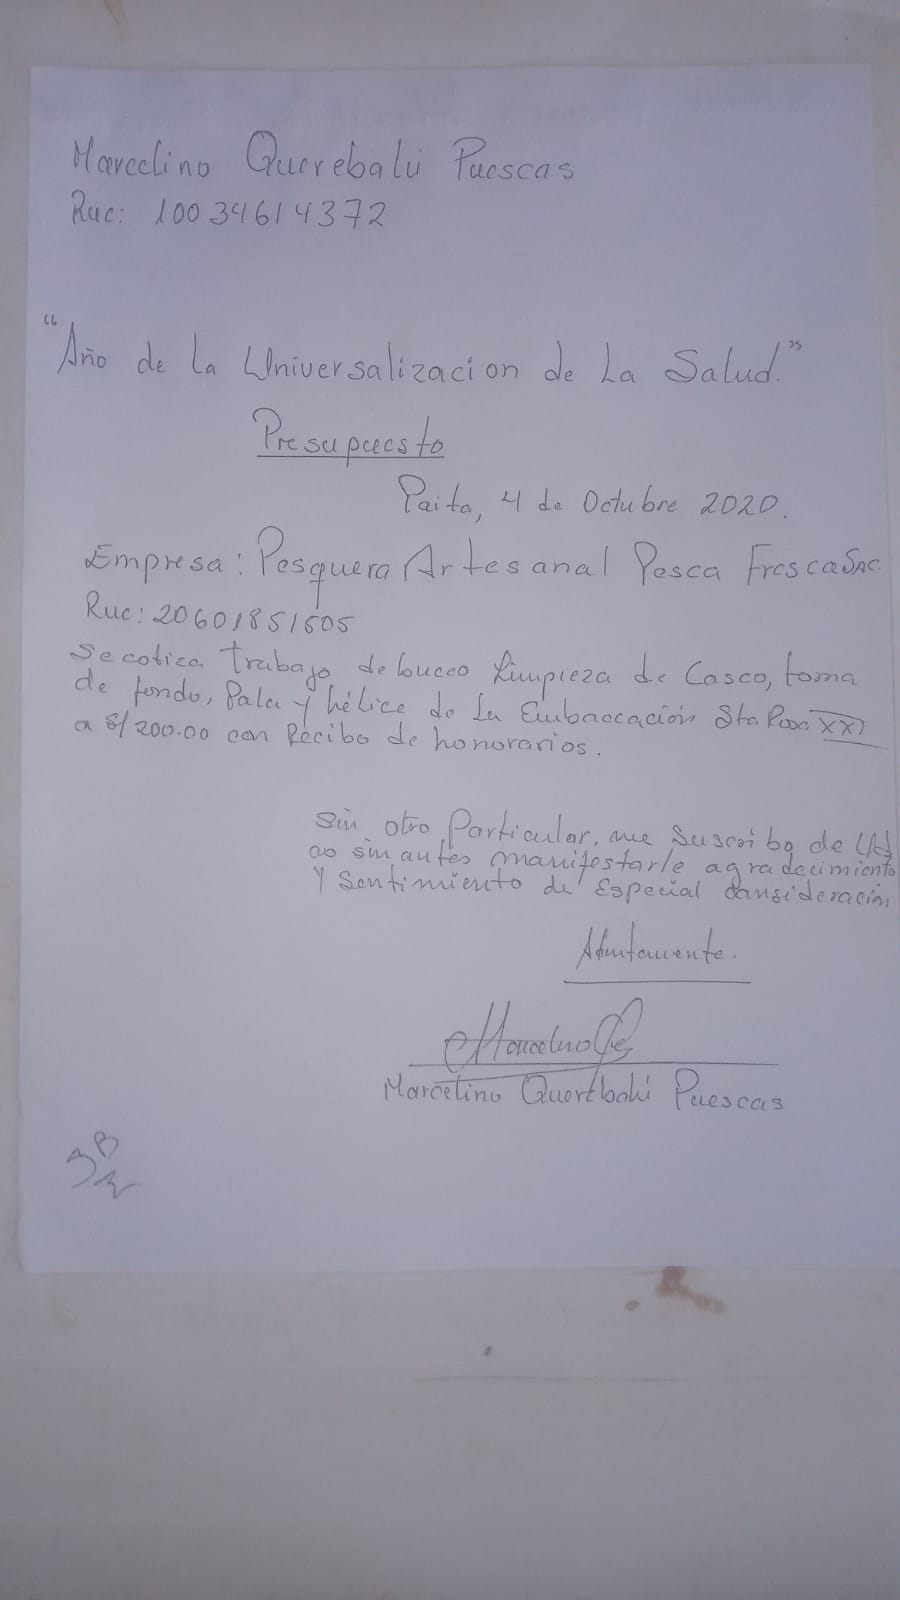 Marcelino Querebalú Puescas
Ruc: 10034614372
"Año de la Universalizacion de La Salud."
Presupuesto
Paita, 4 de Octubre 2020.
Empresa: Pesquera Artesanal Pesca Fresca SAC.
Ruc: 20601851505
Se cotiza trabajo de buceo Limpieza de Casco, toma
de fondo, Pala y hélice de La Embaccación Sta Rosa XXI
a S/ 200.00 con Recibo de honorarios.
Sin otro Particular, me Suscribo de Ud
no sin antes manifestarle agradecimiento
y Sentimiento de Especial Consideración
Atentamente.
Marcelino
Marcelino Querebalú Puescas